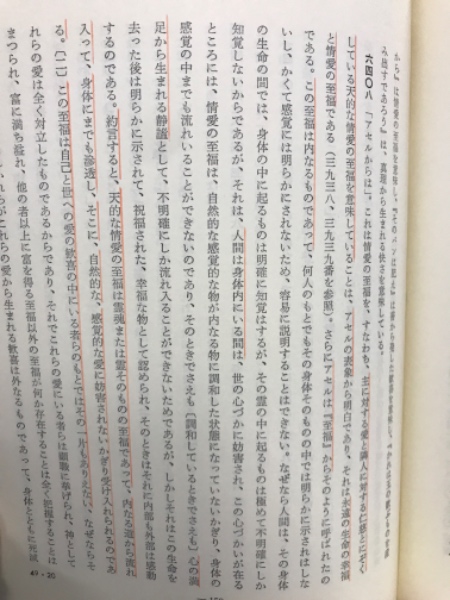 から』は情愛の至福を意味し、
み出すであろう』は、真理から生まれる快さを意味している。
六四〇八 「アセルからは」。これは情愛の至福を、すなわち、主に対する愛と隣人に対する仁慈とにぞく
している天的な情愛の至福を意味していることは、アセルの表象から明白であり、それは永遠の生命の幸福
と情愛の至福である(三九三八、三九三九番を参照)。さらにアセルは『至福』からそのように呼ばれたの
である。この至福は内なるものであって、何人のもとでもその身体そのものの中では明らかに示されはしな
いし、かくて感覚には明らかにされないため、容易に説明することはできない。なぜなら人間は、その身体
の生命の間では、身体の中に起るものは明確に知覚はするが、その霊の中に起るものは極めて不明確にしか
知覚しないからであるが、それは、人間は身体内にいる間は、世の心づかに妨害され、この心づかいが在る
ところには、情愛の至福は、自然的な感覚的な物が内なる物に調和した状態になっていないかぎり、身体の
感覚の中までも流れいることができないのであり、そのときでさえも〔調和しているときでさえも〕心の満
足から生まれる静謐として、不明確にしか流れ入ることができないためであるが、しかしそれはこの生命を
去った後は明らかに示されて、祝福された、幸福な物として認められ、そのときはそれに内部も外部は感動
するのである。約言すると、天的な情愛の至福は霊魂または霊そのものの至福であって、内なる道から流れ
入って、身体にまでも滲透し、そこに、自然的な、感覚的な愛に妨害されないかぎり受け入れられるのであ
る。〔二〕この至福は自己と世への愛の歓喜の中にいる者らのもとではその一片もありえない、なぜならそ
れらの愛は全く対立したものであるからであり、それでこれらの愛にいる者らは顕職に挙げられ、神として
まつられ、富に満ち溢れ、他の者以上に富を得る至福以外の至福が何か存在することは全く把握することは
これらの愛から生まれる歓喜は外なるものであって、身体とともに死滅
49・20